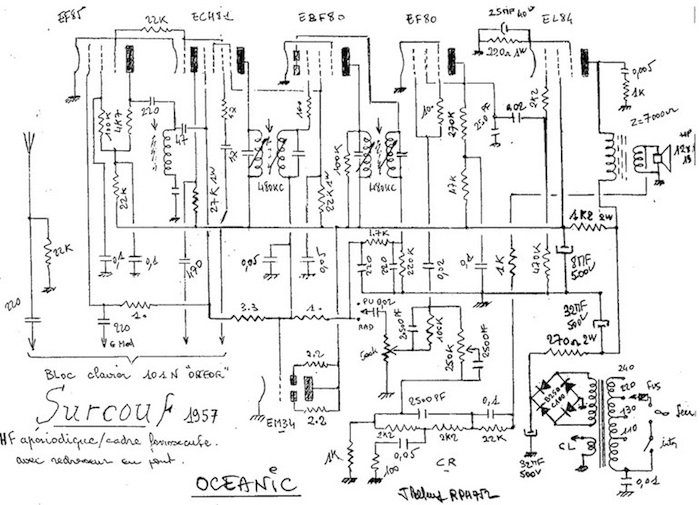 EF85 ECH81 EBF80 EF80 EL84
25MF 40V
220Ω 1W
22K
0,005
1K
Z=7000Ω
HP
100K
4K7
220
47
100
10
270K
250PF
0,02
2K2
480KC
100K
480KC
22K
27K 1W
22K 1W
47K
1K2 2W
22K
0,1
0,1
470
0,05
0,05
1.7K
220
220
220K
0,02
0,1
1K
470K
8MF
500V
220
220
G Mod
3.3
PU
0,02
RAD
100K
250K
2500PF
32MF
500V
270Ω 2W
Bloc clavier 101N "OREOR"
Surcouf 1957
HF apériodique/cadre ferroxcube.
avec redresseur en pont.
2.2
2.2
EM34
500K
2500PF
0,1
2K2
2K2
22K
0,05
1K
100
CR
32MF
500V
CL
240
220
130
110
Fus
Sect
inter
0,01
OCEANIC